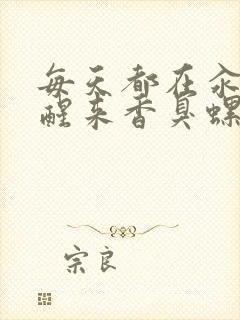 每天都在汆
醒来香臭螺
宗良